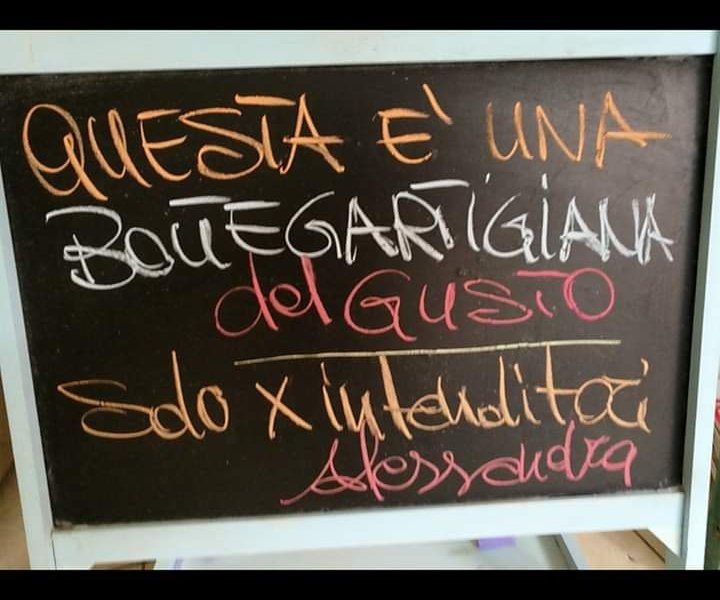 QUESTA E' UNA
BOTTEGARTIGIANA
del GUSTO
Solo x intenditori
Alessandra